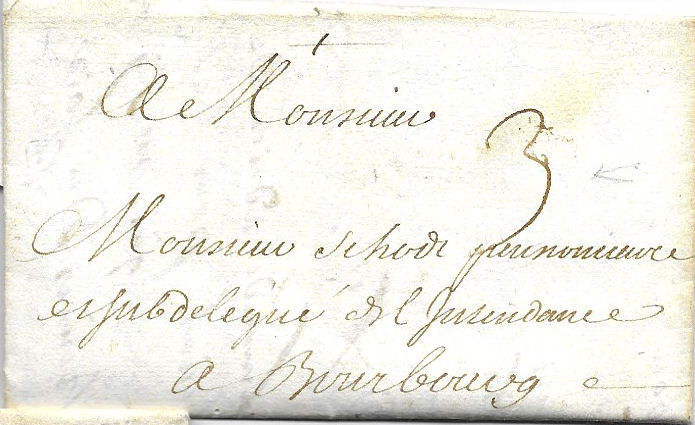 A Monsieur
3
Monsieur schodt pensionnaire
et subdelegué de l Intendance
a Bourbourg